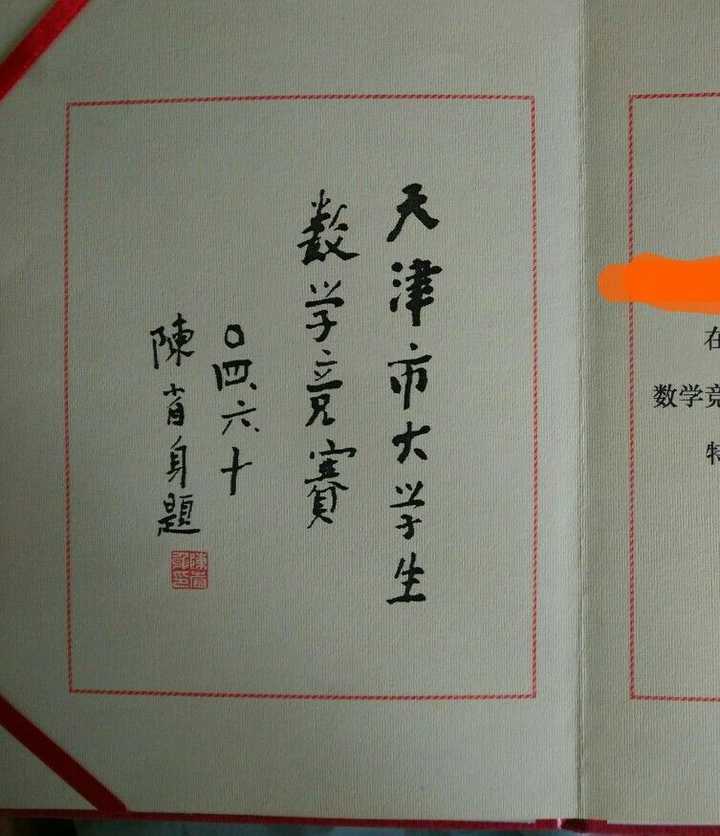 天津市大学生
数学竞赛
〇四、六、十
陳省身題
在
数学竞
特